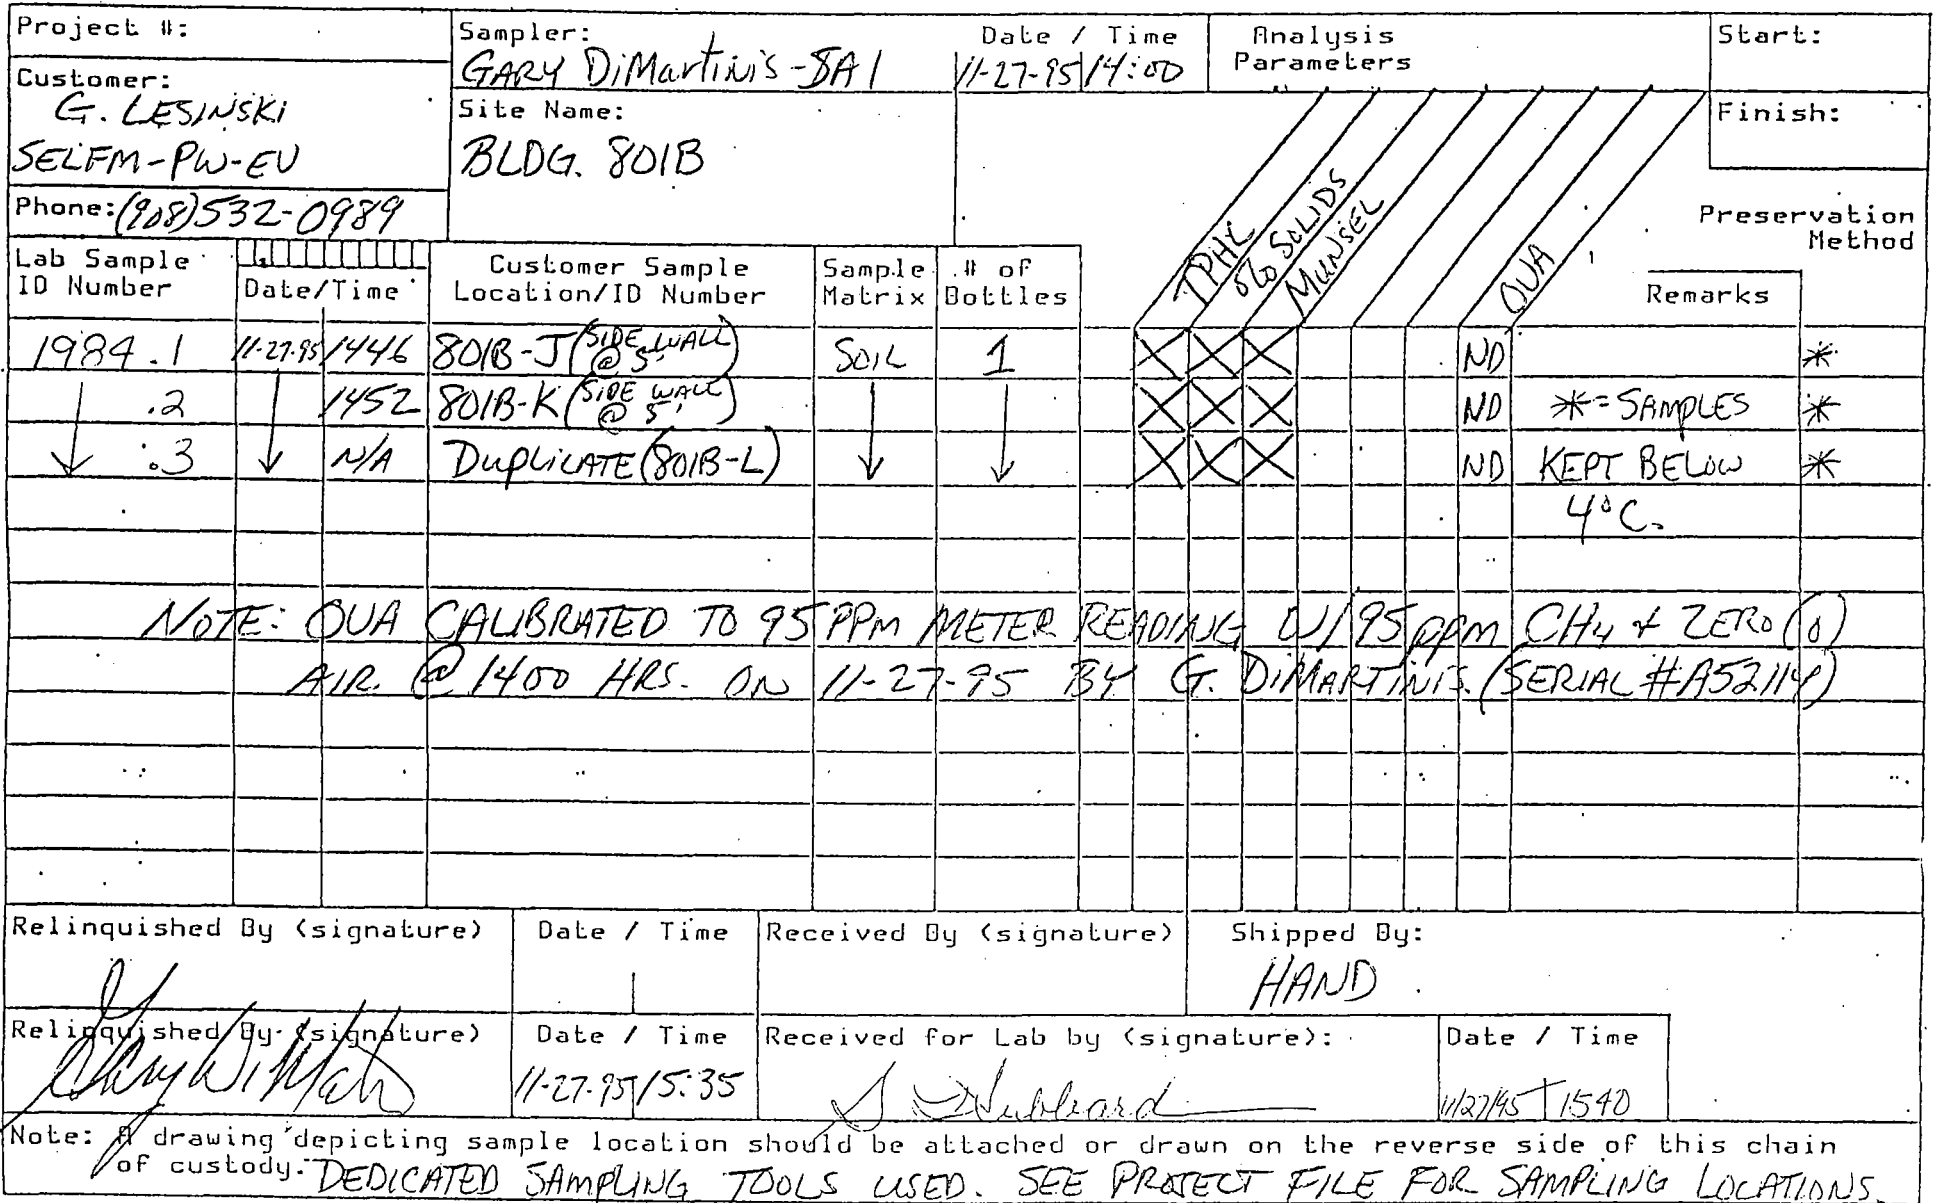 Project #:
Customer:
G. LESINSKI
SELFM-PW-EV
Phone: (908)532-0989
Sampler:
GARY DiMartinis-SAI
Date / Time
11-27-95 14:00
Site Name:
BLDG. 801B
Analysis
Parameters
Start:
Finish:
Preservation
Method
Lab Sample
ID Number
Date/Time
Customer Sample
Location/ID Number
Sample
Matrix
# of
Bottles
TPHC
% SOLIDS
MUNSEL
OVA
Remarks
1984.1 11-27-95 1446 801B-J (SIDE WALL @ 5') SOIL 1 X X X ND *
.2 1452 801B-K (SIDE WALL @ 5') X X X ND *=SAMPLES *
.3 N/A DUPLICATE (801B-L) X X X ND KEPT BELOW *
4°C.
NOTE: OVA CALIBRATED TO 95 PPM METER READING W/95 ppm CH4 + ZERO (0)
AIR. @ 1400 HRS. ON 11-27-95 BY G. DIMARTINIS. (SERIAL #A52114)
Relinquished By (signature)
Date / Time
Received By (signature)
Shipped By:
HAND
Relinquished By (signature)
Date / Time
11-27-95 15:35
Received for Lab by (signature):
S Hubbard
Date / Time
11/27/95 1540
Note: A drawing depicting sample location should be attached or drawn on the reverse side of this chain
of custody. DEDICATED SAMPLING TOOLS USED. SEE PROJECT FILE FOR SAMPLING LOCATIONS.